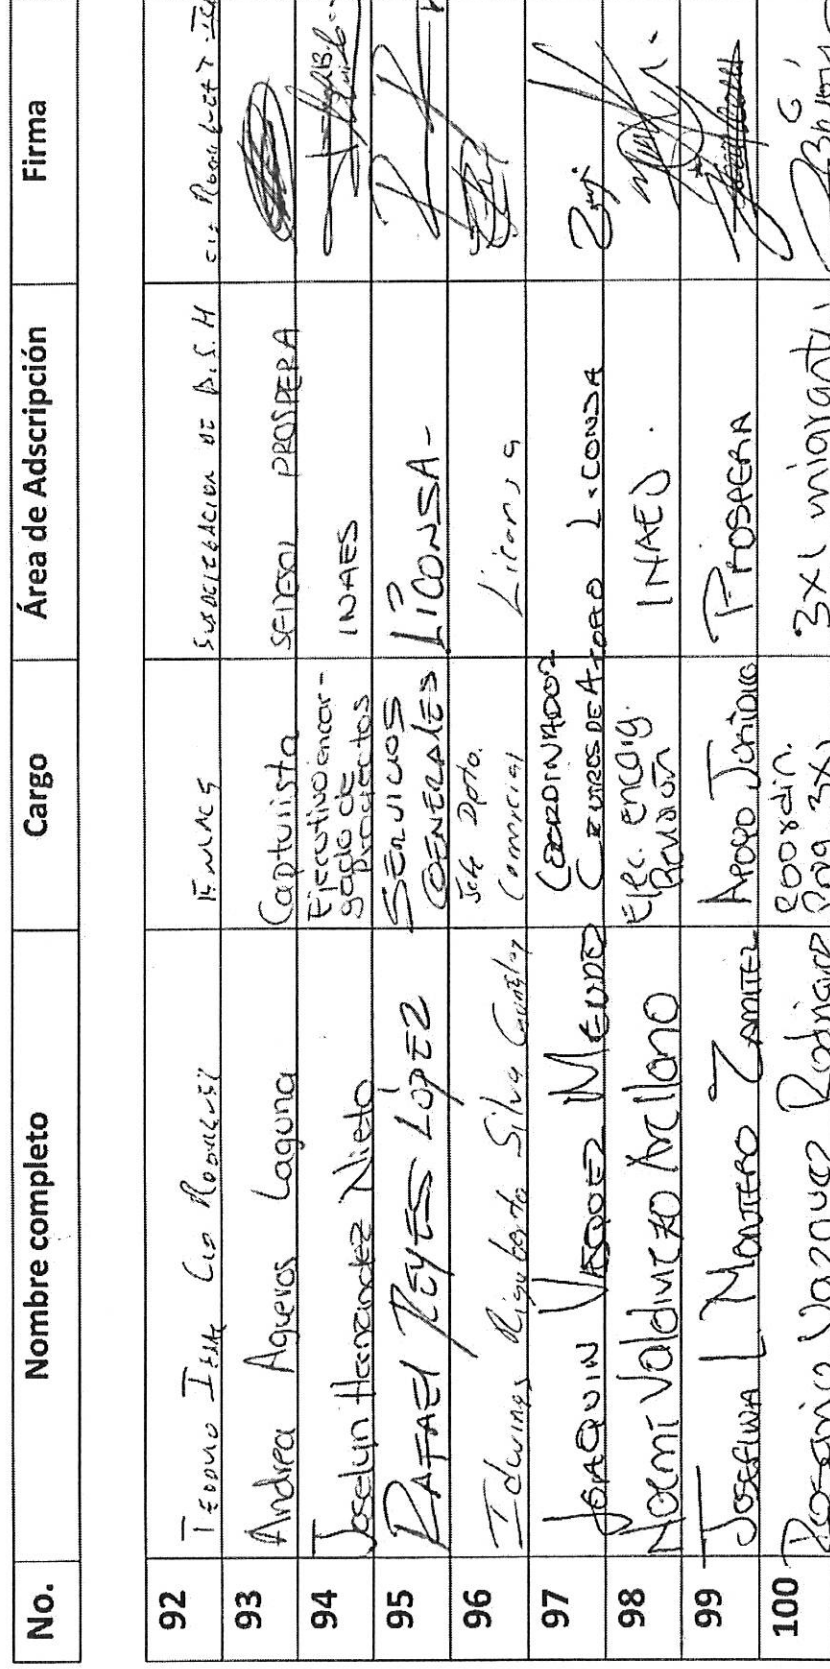 No. Nombre completo Cargo Área de Adscripción Firma
92 SUBDELEGACION DE D.S.H
93 Andrea Agueros Laguna Capturista SEDESOL PROSPERA
94 Joselyn Hernández Nieto Ejecutivo encar-
gado de
proyectos INAES
95 RAFAEL REYES LÓPEZ SERVICIOS
GENERALES LICONSA-
96 Rigoberto Silva Jefe Dpto.
Comercial Liconsa
97 JOAQUIN VASQUEZ COORDINADOR
CENTROS DE ACOPIO LICONSA
98 Noemí Valdiviezo Arellano Ejec. encarg.
Revisión INAES.
99 JOSEFINA L. MONTERO APOYO JURIDICO PROSPERA
100 Vazquez Rodríguez Coordin.
Prog 3x1 3x1 migrantes